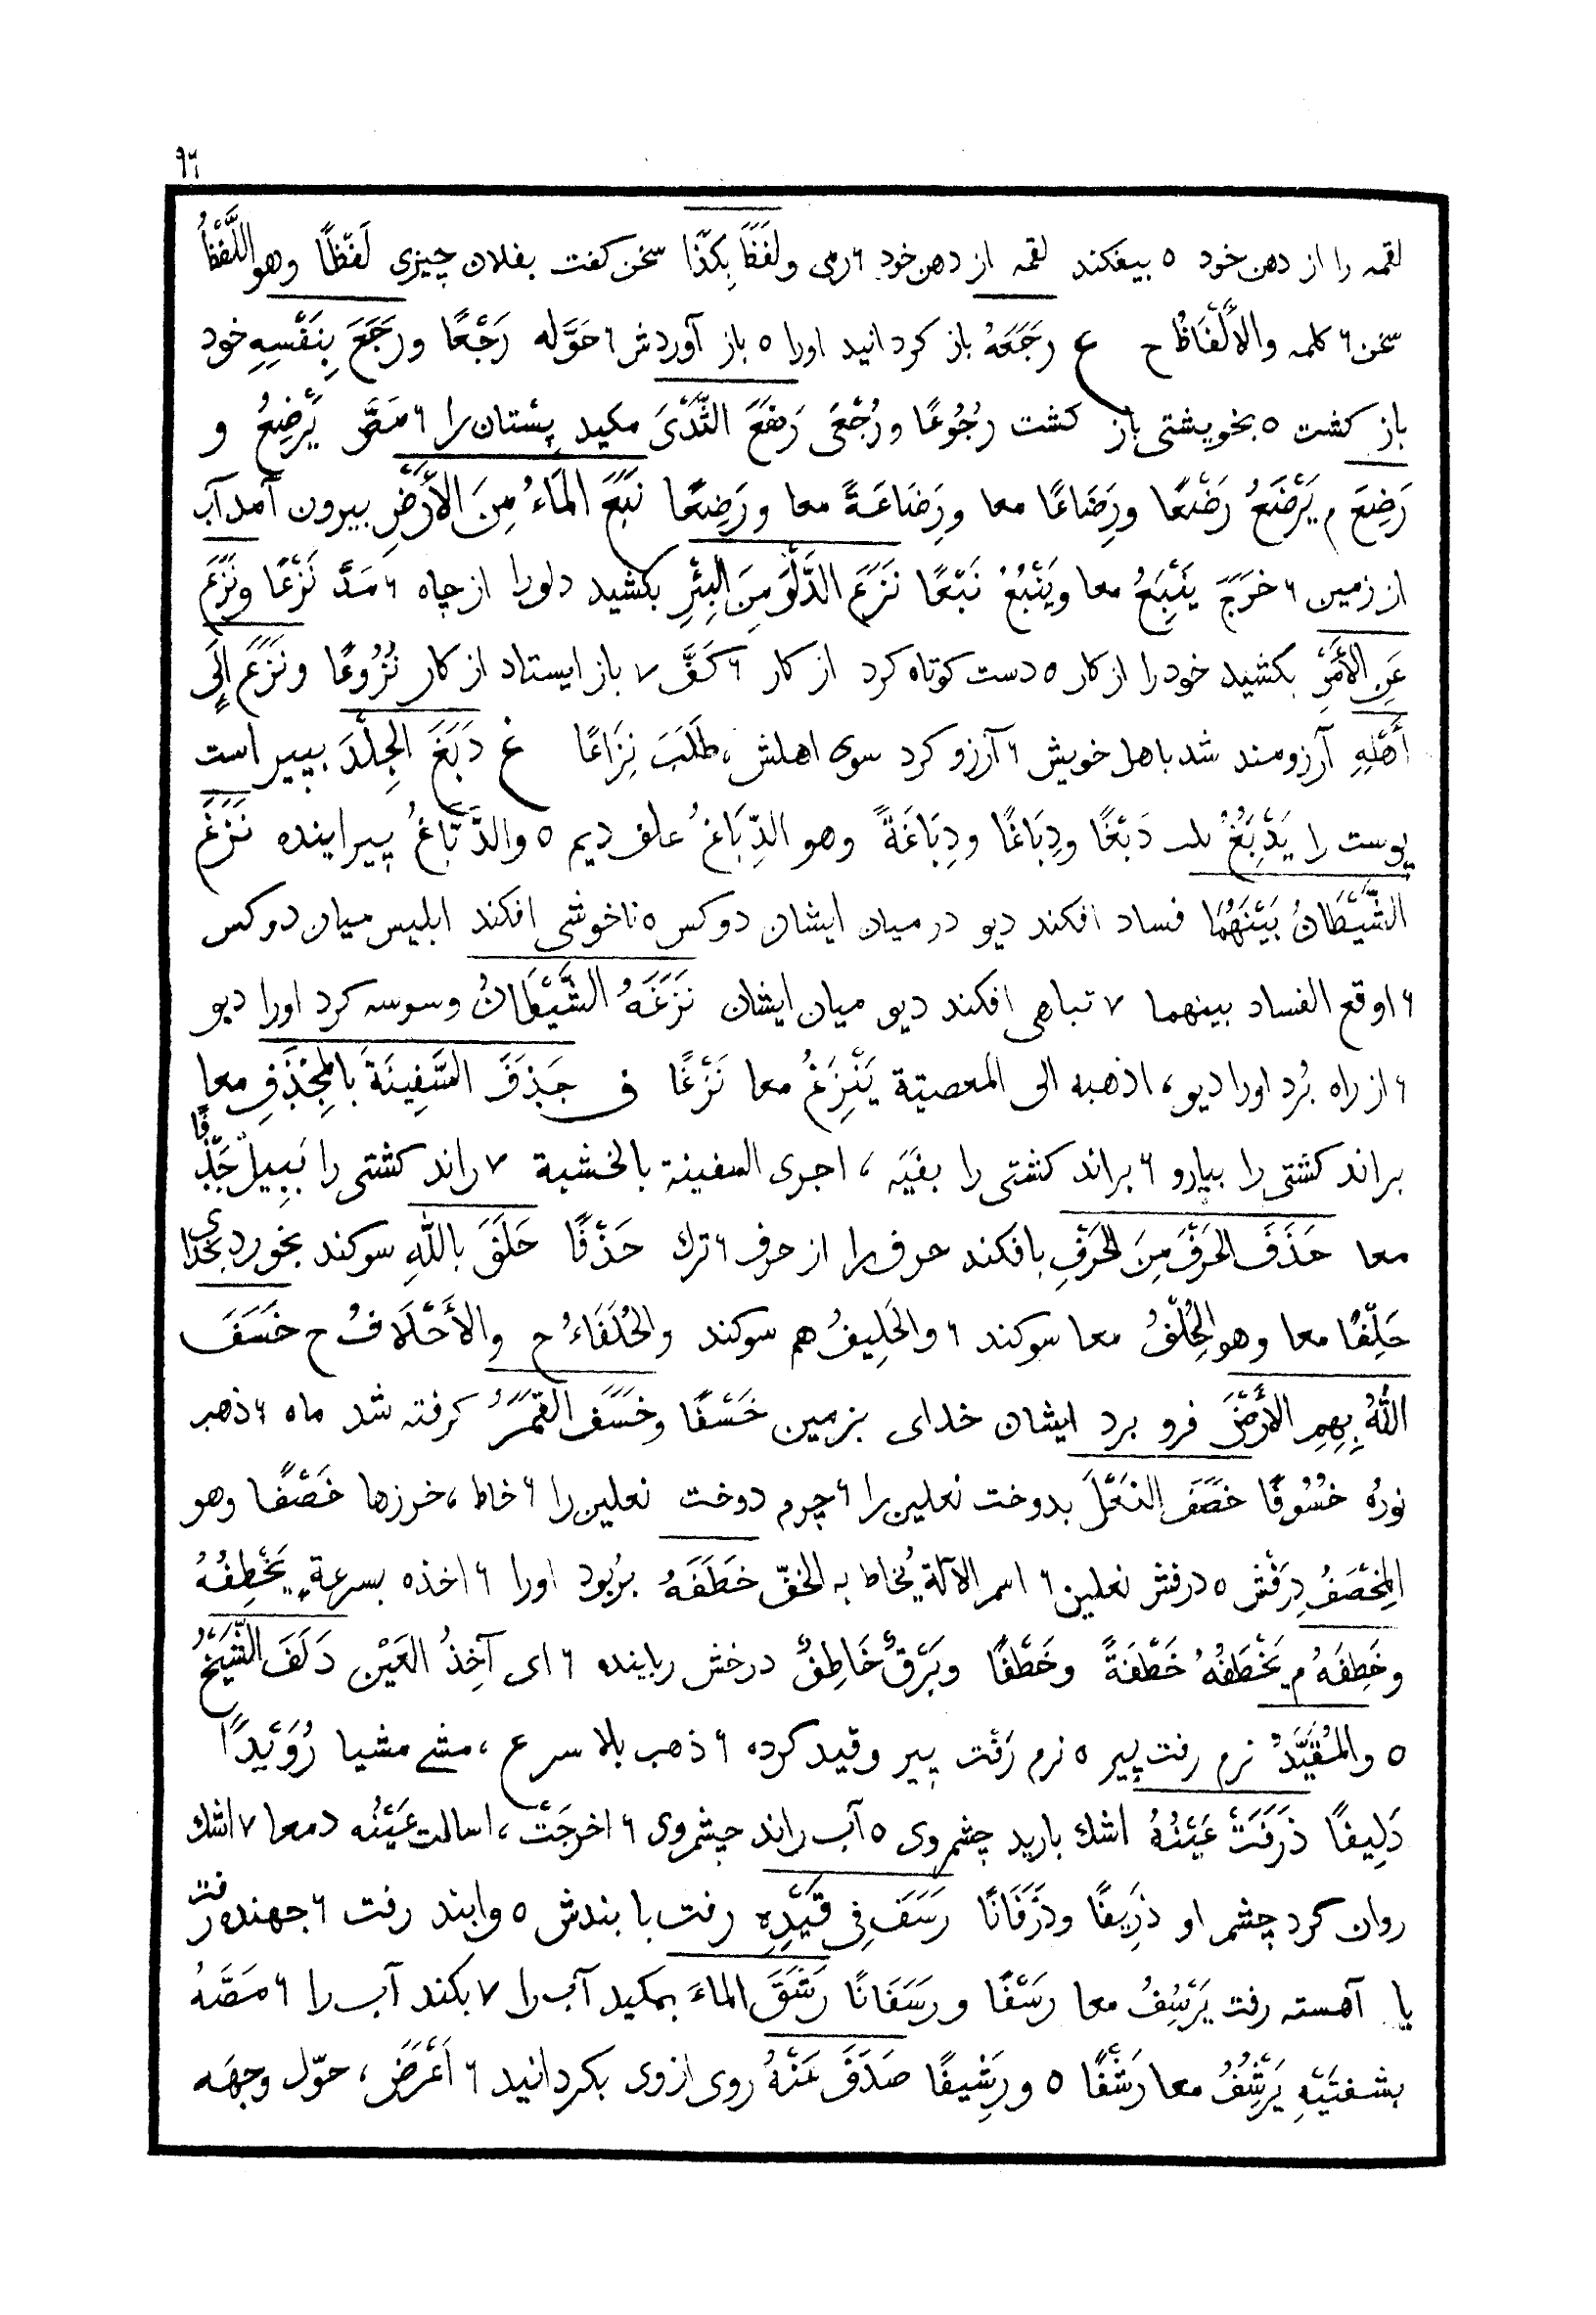 ٩٦
لقمه را از دهن خود ٥ بیفکند لقمه از دهن خود ٦ رمی ولَفَظَ بِکَذَا سخن کفت بفلان چیزی لَفْظًا وهو اللَّفْظُ
سخن ٦ کلمه والاَلْفَاظُ ح ع رَجَعَهُ باز کردانید اورا ٥ باز آوردش ٦ حَوَّله رَجْعًا ورَجَعَ بِنَفْسِهِ خود
باز کشت ٥ بخویشتی باز کشت رُجُوعًا ورُجْعَی رَضَعَ الثَّدْیَ مکید پستان را ٦ مَصَّ یَرْضِعُ و
رَضِعَ م یَرْضَعُ رَضْعًا ورِضَاعًا معا ورِضَاعَةً معا ورَضِعًا نَبَعَ المَاءُ مِنَ الاَرْضِ بیرون آمد آب
از زمین ٦ خَرَجَ یَنْبِعُ معا ویَنْبُعُ نَبْعًا نَزَعَ الدَّلْوَ مِنَ البِئْرِ بکشید دلورا از چاه ٦ مَدَّ نَزْعًا ونَزَعَ
عَنِ الاَمْرِ بکشید خود را از کار ٥ دست کوتاه کرد از کار ٦ کَفَّ ٧ باز ایستاد از کار نُزُوعًا ونَزَعَ اِلَی
اَهْلِهِ آرزومند شد باهل خویش ٦ آرزو کرد سوی اهلش، طَلَبَ نِزَاعًا غ دَبَغَ الجِلْدَ بپیراست
پوست را یَدْبِغُ دَبْغًا ودِبَاغًا ودِبَاغَةً وهو الدِّبَاغُ علف دیم ٥ والدَّبَّاغُ پیراینده نَزَغَ
الشَّیْطَانُ بَیْنَهُمَا فساد افکند دیو در میان ایشان دو کس ٥ ناخوشی افکند ابلیس میان دو کس
٦ اوقع الفساد بینهما ٧ تباهی افکند دیو میان ایشان نَزَغَهُ الشَّیْطَانُ وسوسه کرد اورا دیو
٦ از راه بُرد اورا دیو، اذهبه الی المعصیّة یَنْزِغُ معا نَزْغًا ف جَذَفَ السَّفِینَةَ بِالمِجْذَفِ معا
براند کشتی را بپارو ٦ براند کشتی را بفَیَه ، اجری السفینة بالخشبة ٧ راند کشتی را بَبِیل جَذْفًا
معا حَذَفَ الحَرْفَ مِنَ الحَرْفِ بافکند حرف را از حرف ٦ ترك حَذْفًا حَلَفَ بِاللهِ سوکند بخورد بخدای
حَلِفًا معا وهو الحِلْفُ معا سوکند ٦ والحَلِیفُ هم سوکند والحُلَفَاءُ ح والاَحْلَافُ ح خَسَفَ
اللهُ بِهِمِ الاَرْضَ فرو برد ایشان خدای بزمین خَسْفًا وخَسَفَ القَمَرُ کرفته شد ماه ٦ ذهب
نورُه خُسُوفًا خَصَفَ النَعْلَ بدوخت نعلین را ٦ چرم دوخت نعلین را ٦ خاط، خرزها خَصْفًا وهو
المِخْصَفُ دِرَفْش ٥ درفش نعلین ٦ اسم الآلة یُخاط به الخفّ خَطَفَهُ بربود اورا ٦ اخذه بسرعةٍ یَخْطِفُهُ
وخَطِفَهُ م یَخْطَفُهُ خَطْفَةً وخَطْفًا وبَرْقٌ خَاطِفٌ درخش رباینده ٦ ای آخِذُ العَیْن دَلَفَ الشَّیْخُ
٥ والمُقَیَّدُ نرم رفت پیر ٥ نرم رَفْت پیر وقید کرده ٦ ذهب بلا سرع ، مشی مشیا رُوَیْدًا
دَلِیفًا ذَرَفَتْ عَیْنُهُ اشك بارید چشم وی ٥ آب راند چشم وی ٦ اخرجَتْ، اسالت عَیْنُه دمعا ٧ اشك
روان کرد چشم او ذَرِیفًا وذَرَفَانًا رَسَفَ فِی قَیْدِهِ رفت با بندش ٥ وابند رفت ٦ جهنده رفت
یا آهسته رفت یَرْسِفُ معا رَسْفًا ورَسَفَانًا رَشَفَ الماءَ بمکید آب را ٧ بکند آب را ٦ مَصَّهُ
بشفتَیْهِ یَرْشِفُ معا رَشْفًا ٥ ورَشِیفًا صَدَفَ عَنْهُ روی ازوی بکردانید ٦ اَعْرَضَ، حوّل وجهَه